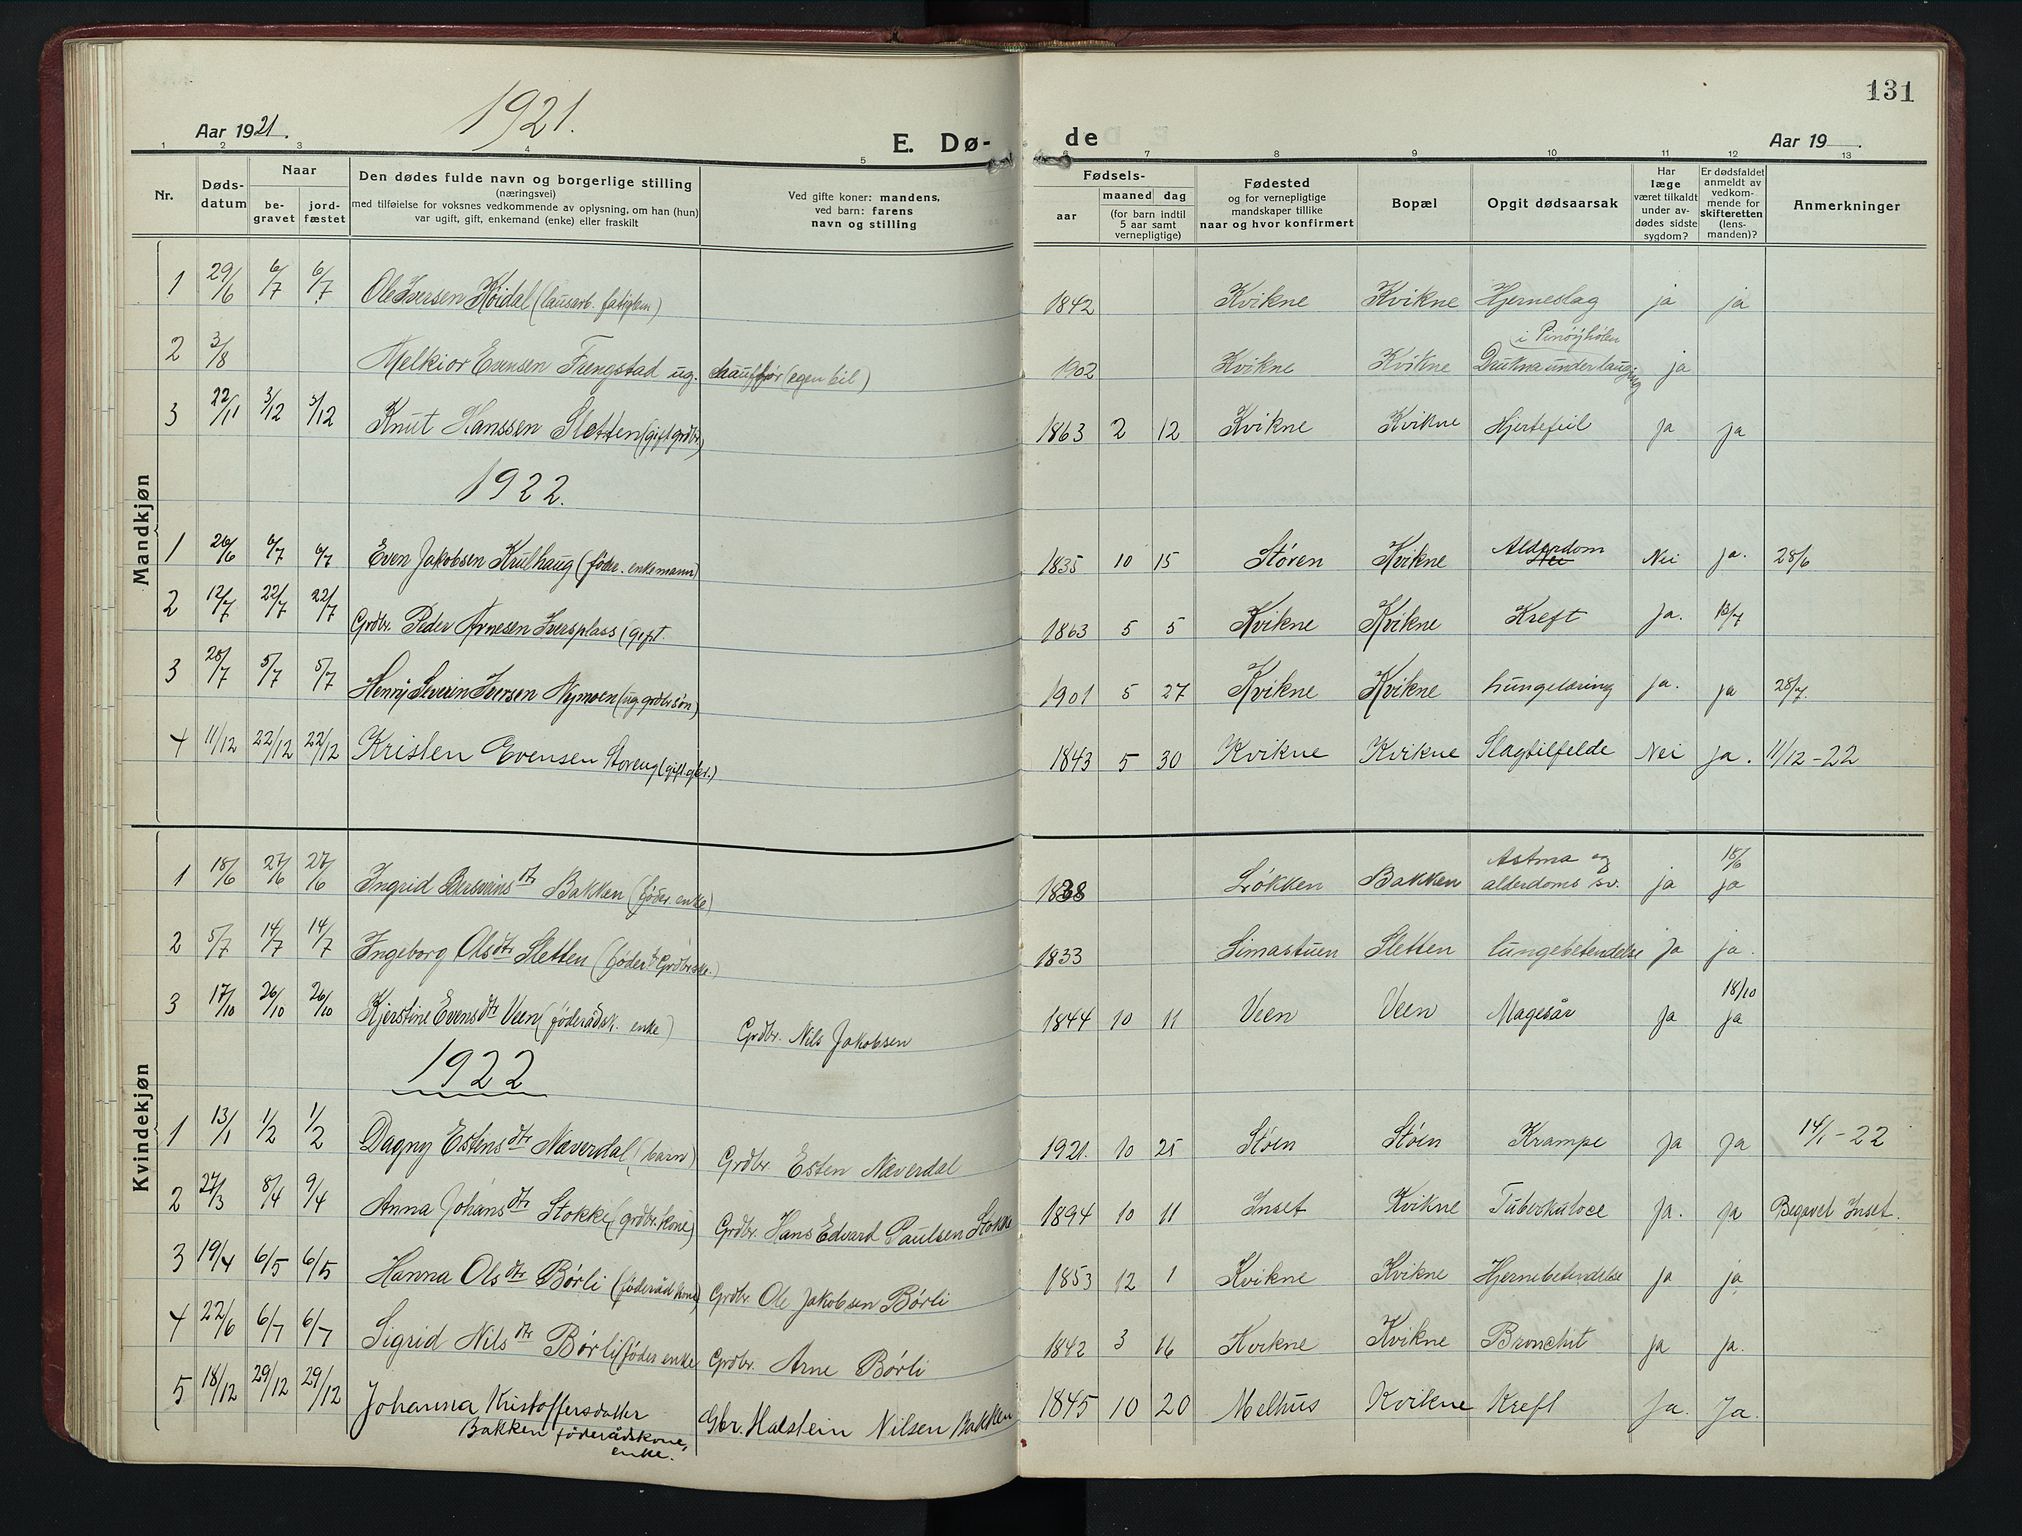 131
1921.
Aar 1921. E. Dø- de Aar 19
1 2 3 4 5 6 7 8 9 10 11 12 13
Nr. Døds-datum Naar be-gravet jord-fæstet Den dødes fulde navn og borgerlige stilling (næringsvei) med tilføielse for voksnes vedkommende av oplysning, om han (hun) var ugift, gift, enkemand (enke) eller fraskilt Ved gifte koner: mandens, ved barn: farens navn og stilling Fødsels- aar maaned dag (for barn indtil 5 aar samt vernepligtige) Fødested og for vernepligtige mandskaper tillike naar og hvor konfirmert Bopæl Opgit dødsaarsak Har læge været tilkaldt under av-dødes sidste sygdom? Er dødsfaldet anmeldt av vedkom-mende for skifteretten (lens-manden)? Anmerkninger
Mandkjøn
1 29/6 6/7 6/7 Ole Iversen Hoidal (lausarb. fatigkm) 1842 Kvikne Kvikne Hjerneslag ja ja
2 3/8 Melkior Evensen Frengstad ug. chauffør (egen bil) 1902 Kvikne Kvikne i Pinøyhølen Drukna under laugning ja
3 22/11 3/12 3/12 Knut Hanssen Sletten (gift grdbr) 1863 2 12 Kvikne Kvikne Hjertefeil ja ja
1922.
1 26/6 6/7 6/7 Even Jakobsen Krulhaug (føder. enkemann) 1835 10 15 Støren Kvikne Alderdom Nei Nei ja. 28/6
2 12/7 22/7 22/7 Grdbr. Peder Arnesen Iversplass (gift. 1863 5 5 Kvikne Kvikne Kreft ja. 13/7
3 28/7 5/7 5/7 Henry Severin Iversen Nymoen (ug. grdbr.søn) 1901 5 27 Kvikne Kvikne Lungetæring ja. ja 28/7.
4 11/12 22/12 22/12 Kristen Evensen Storeng (gift. gbr.) 1843 5 30 Kvikne Kvikne Slagtilfelde Nei ja. 11/12-22
Kvindekjøn
1 18/6 27/6 27/6 Ingrid dtr Bakken (føder. enke) 1838 Løkken Bakken Astma og alderdoms sv. ja 18/6 ja
2 5/7 14/7 14/7 Ingeborg Olsdtr Sletten 1833 Simastuen Sletten Lungebetendelse ja ja.
3 17/10 26/10 26/10 Kjerstine Evensdtr Veen (føderådsk. enke) Grdbr. Nils Jakobsen 1844 10 11 Veen Veen Magesår ja 18/10 ja
1922
1 13/1 1/2 1/2 Dagny Estensdtr Næverdal (barn) Grdbr. Esten Næverdal 1921. 10 25 Støen Støen Krampe ja ja 14/1-22
2 27/3 8/4 9/4 Anna Johansdtr Stokke (grdbr. kone) Grdbr. Hans Edvard Paulsen Stokke 1894 10 11 Inset Kvikne Tuberkulose ja. ja Begavet Inset.
3 19/4 6/5 6/5 Hanna Olsdtr Børli (føderåd kone) Grdbr. Ole Jakobsen Børli 1853 12 1 Kvikne Kvikne Hjernebetendelse ja ja,
4 22/6 6/7 6/7 Sigrid Nilsdtr Børli (føder enke Grdbr. Arne Børli 1842 3 16 Kvikne Kvikne Bronchit ja ja.
5 18/12 29/12 29/12 Johanna Kristoffersdatter Bakken føderådskone, enke. Gbr. Halstein Nilsen Bakken 1845 10 20 Melhus Kvikne Kreft Ja. Ja.